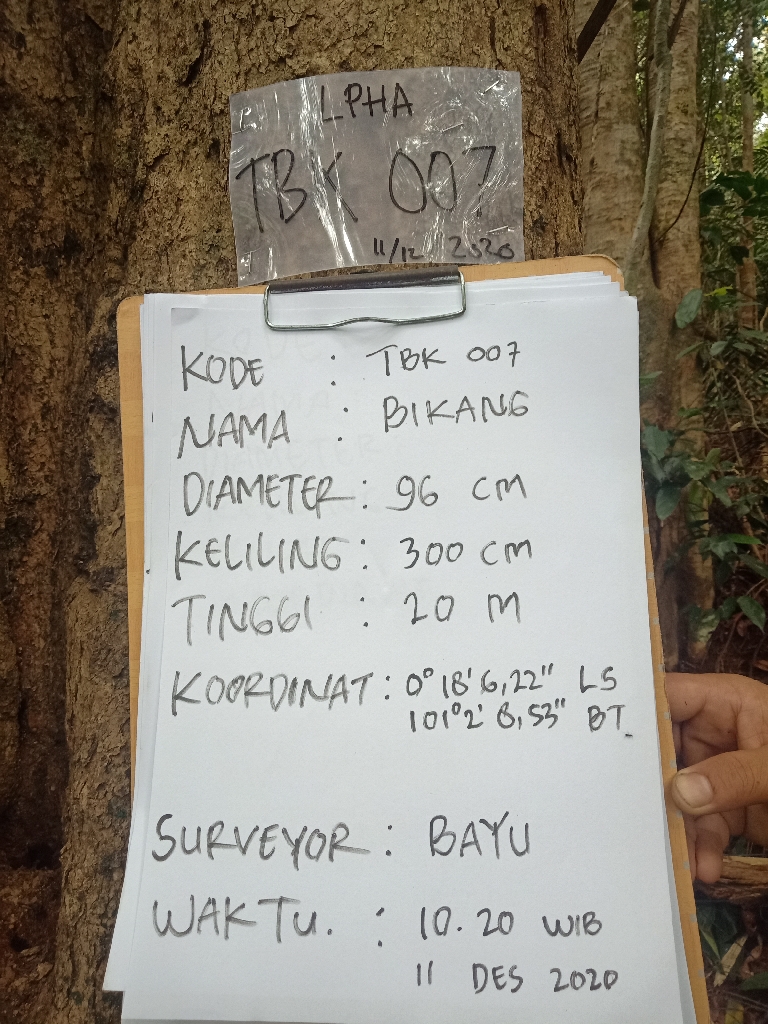 LPHA
TBK 007
11/12 2020
KODE : TBK 007
NAMA : BIKANG
DIAMETER : 96 cm
KELILING : 300 cm
TINGGI : 20 M
KOORDINAT : 0° 18' 6,22" LS
101° 2' 8,53" BT
SURVEYOR : BAYU
WAKTU. : 10.20 WIB
11 DES 2020